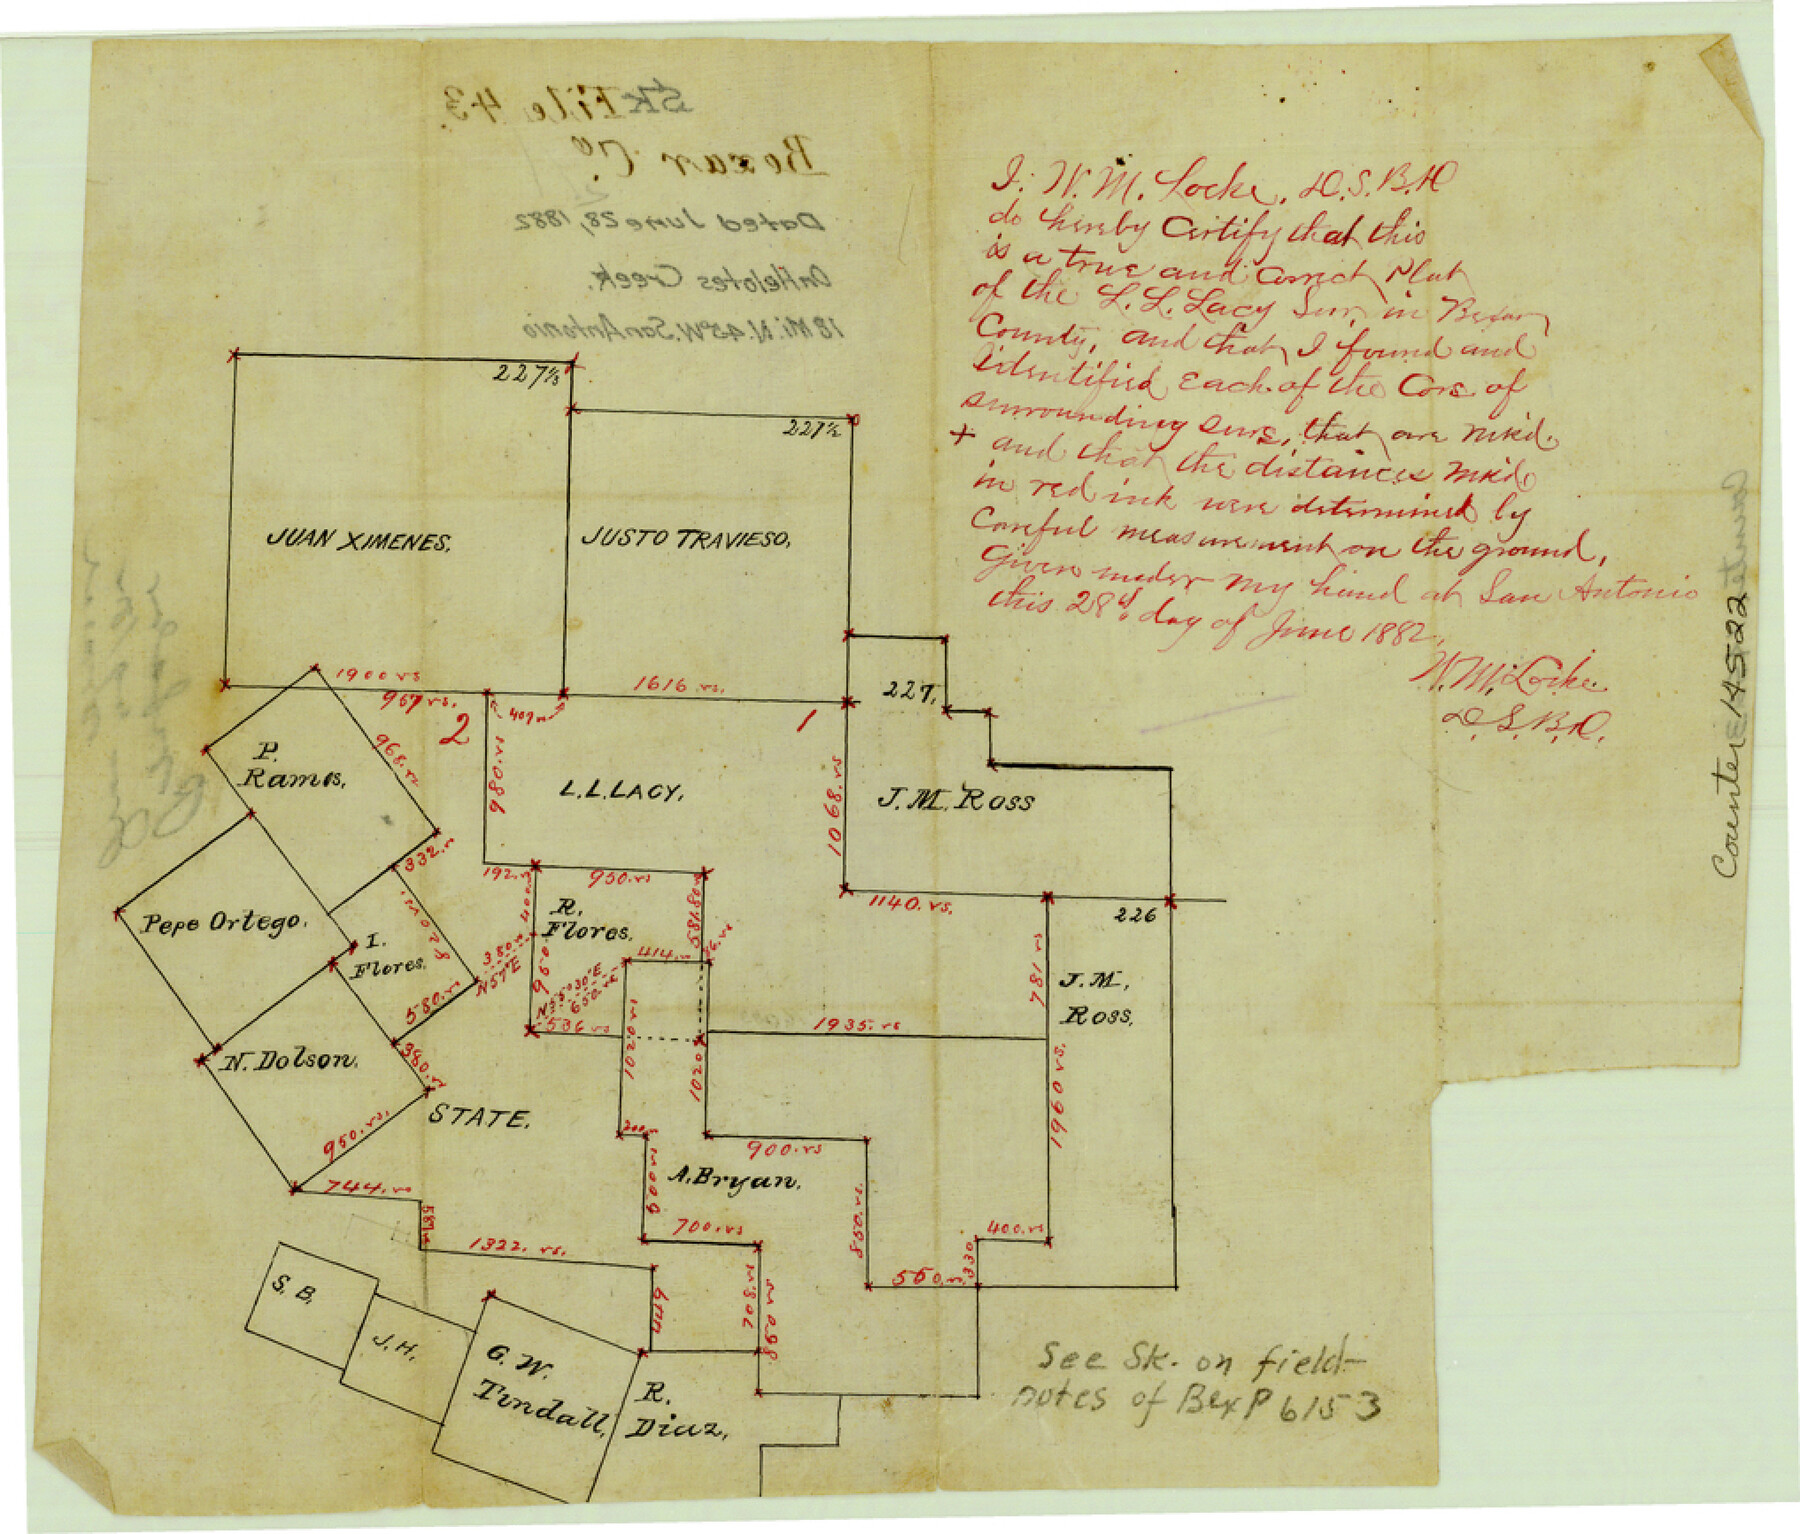 Sk File 43.
Bexar Co.
Dated June 28, 1882
18 Mi. N. 45 W. San Antonio
I, W. M. Locke, D.S.B.D
do hereby Certify that this
is a true and Correct Plat
of the L. L. Lacy Sur, in Bexar
County, and that I found and
identified Each of the Cors. of
surrounding surs, that are mk'd.
x and that the distances mk'd
in red ink were determined by
Careful measurement on the ground,
Given under my hand at San Antonio
this 28th day of June 1882,
W. M. Locke.
D.S.B.D.
Counter 14522
227⅓
227½
JUAN XIMENES.
JUSTO TRAVIESO,
1900 vs
967 vs.
407 vs
1616 vs.
2
1
227.
P.
Ramos.
968. vs
680. vs
L. L. LACY.
1068. vs
J. M. Ross
332. vs
192. vs
950. vs
1140. vs.
226
Pepe Ortego.
I.
Flores.
820 vs.
580. vs
380 vs
N57°E
400
950
R.
Flores.
581.80
414. vs
N55°30'E
650. vs
536 vs
781 vs
J. M.
Ross.
1935. vs
N. Dolson.
380. vs
STATE.
1020 vs
1020
1960 vs.
950. vs.
744. vs
200
600 vs
A. Bryan.
900. vs
850. vs.
700. vs
400. vs
330
560. vs
1322. vs.
708 vs
860 vs
S. B.
J. H.
G. W.
Tindall,
R.
Diaz,
See Sk. on field-
notes of Bex P 6153